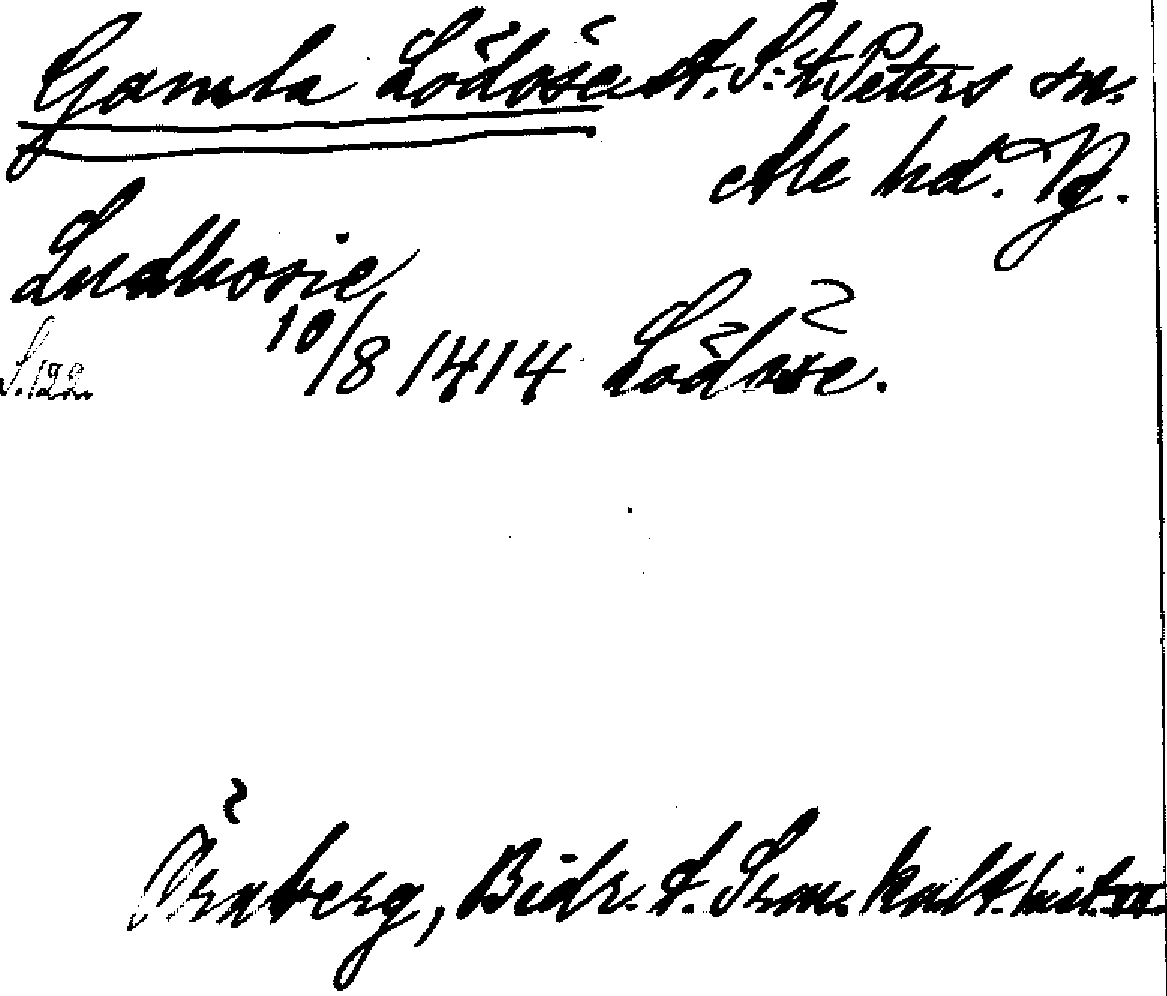 Gamla Lödöse st. S:t Peters sn.
Ale hd. Vg.
Ludhosie
10/8 1414 Lödöse.
S. 122.
Örnberg, Bidr. t. Sven. kult. hist. III.